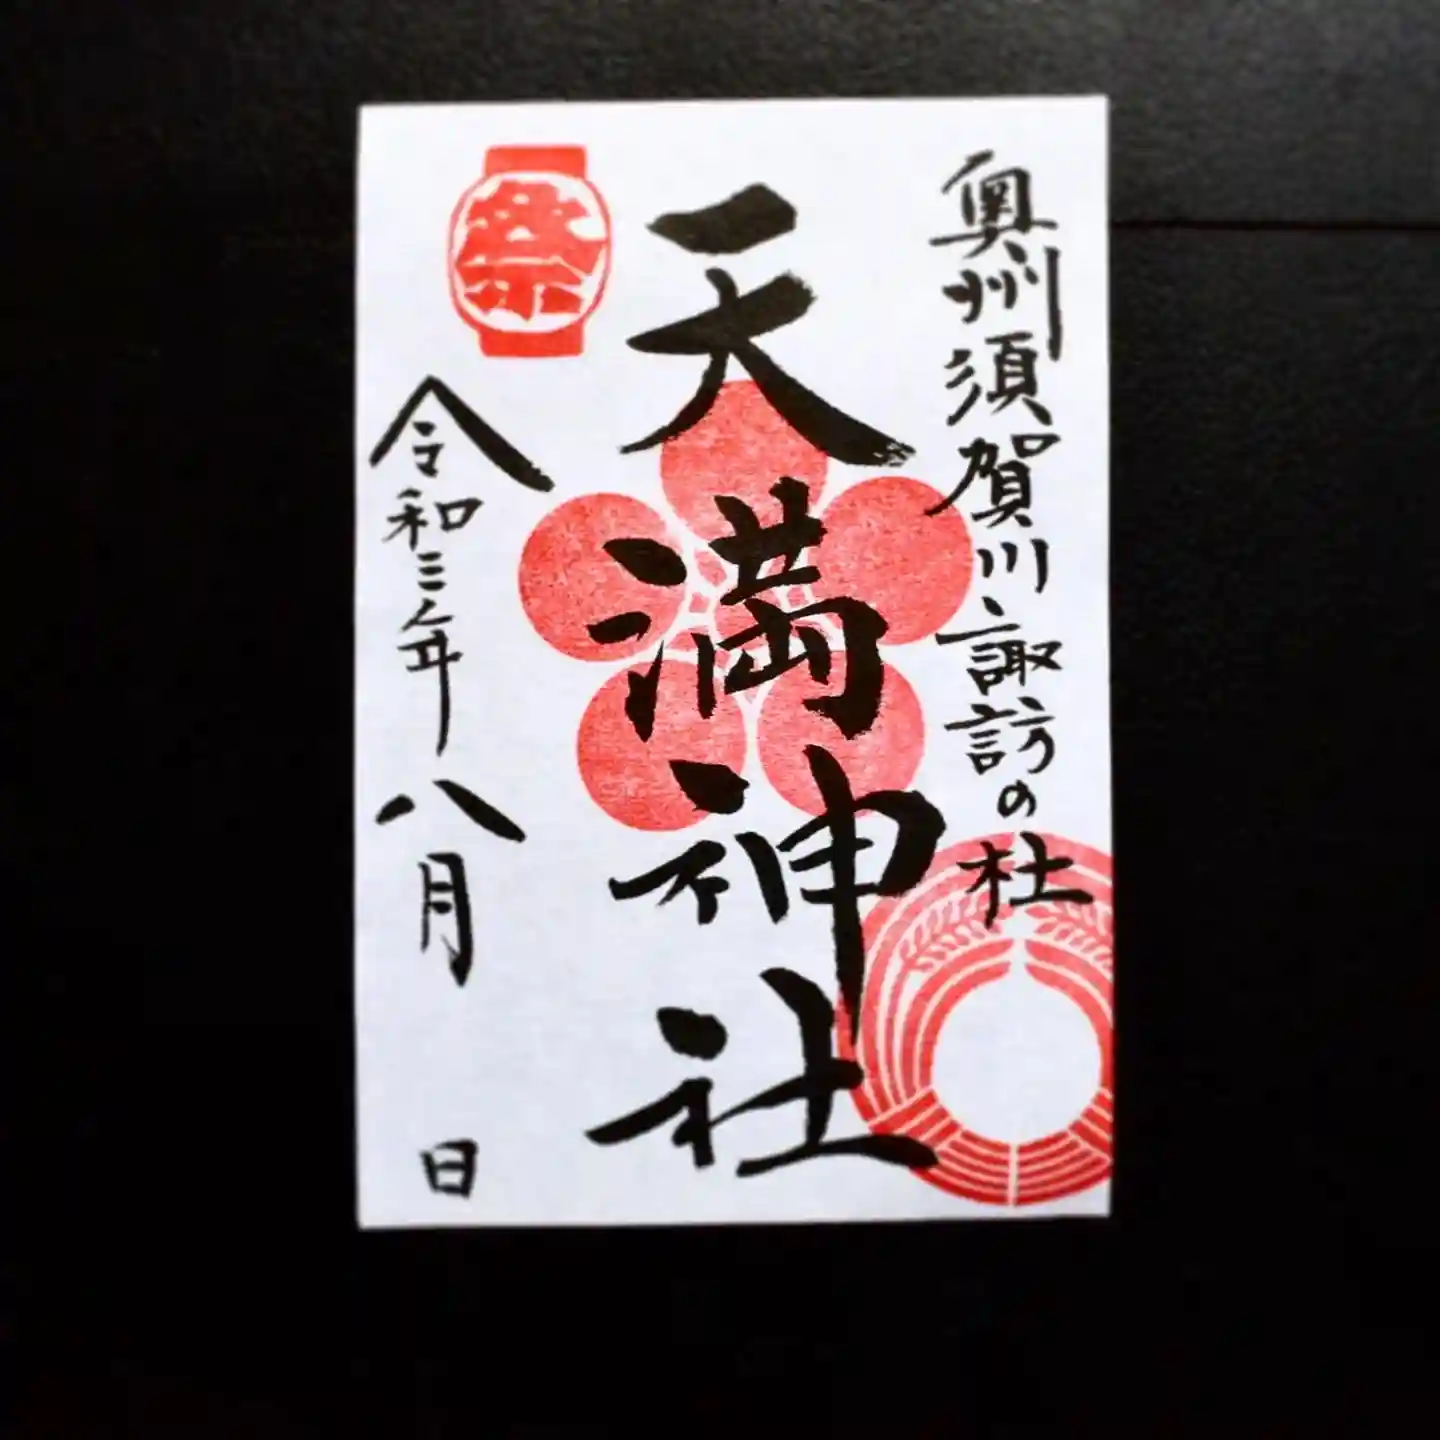 奥州須賀川諏訪の杜
天満神社
祭
令和三年八月 日